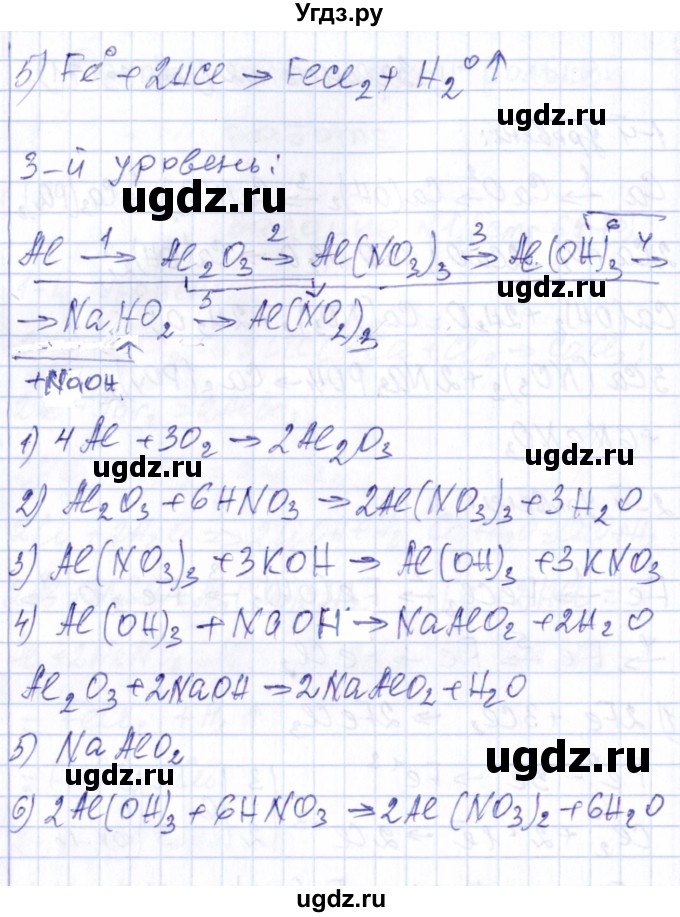 Угдз.ру
5) Fe⁰ + 2HCl → FeCl₂ + H₂⁰↑
ugdz.ru
3-й уровень:
ugdz.ru
Al 1→ Al₂O₃ 2→ Al(NO₃)₃ 3→ Al(OH)₃ 4→
6
ugdz.ru
→ NaHO₂ 5→ Al(NO₂)₃
+NaOH
ugdz.ru
1) 4Al + 3O₂ → 2Al₂O₃
ugdz.ru ugdz.ru
2) Al₂O₃ + 6HNO₃ → 2Al(NO₃)₃ + 3H₂O
3) Al(NO₃)₃ + 3KOH → Al(OH)₃ + 3KNO₃
4) Al(OH)₃ + NaOH → NaAlO₂ + 2H₂O
Al₂O₃ + 2NaOH → 2NaAlO₂ + H₂O
5) NaAlO₂
ugdz.ru ugdz.ru
6) 2Al(OH)₃ + 6HNO₃ → 2Al(NO₃)₂ + 6H₂O
ugdz.ru
ugdz.ru